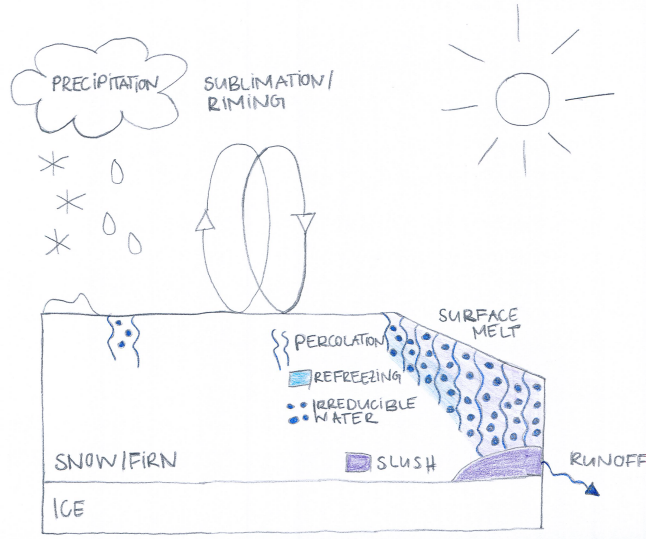 PRECIPITATION
SUBLIMATION/
RIMING
SURFACE
MELT
PERCOLATION
REFREEZING
IRREDUCIBLE
WATER
SNOW/FIRN
SLUSH
RUNOFF
ICE